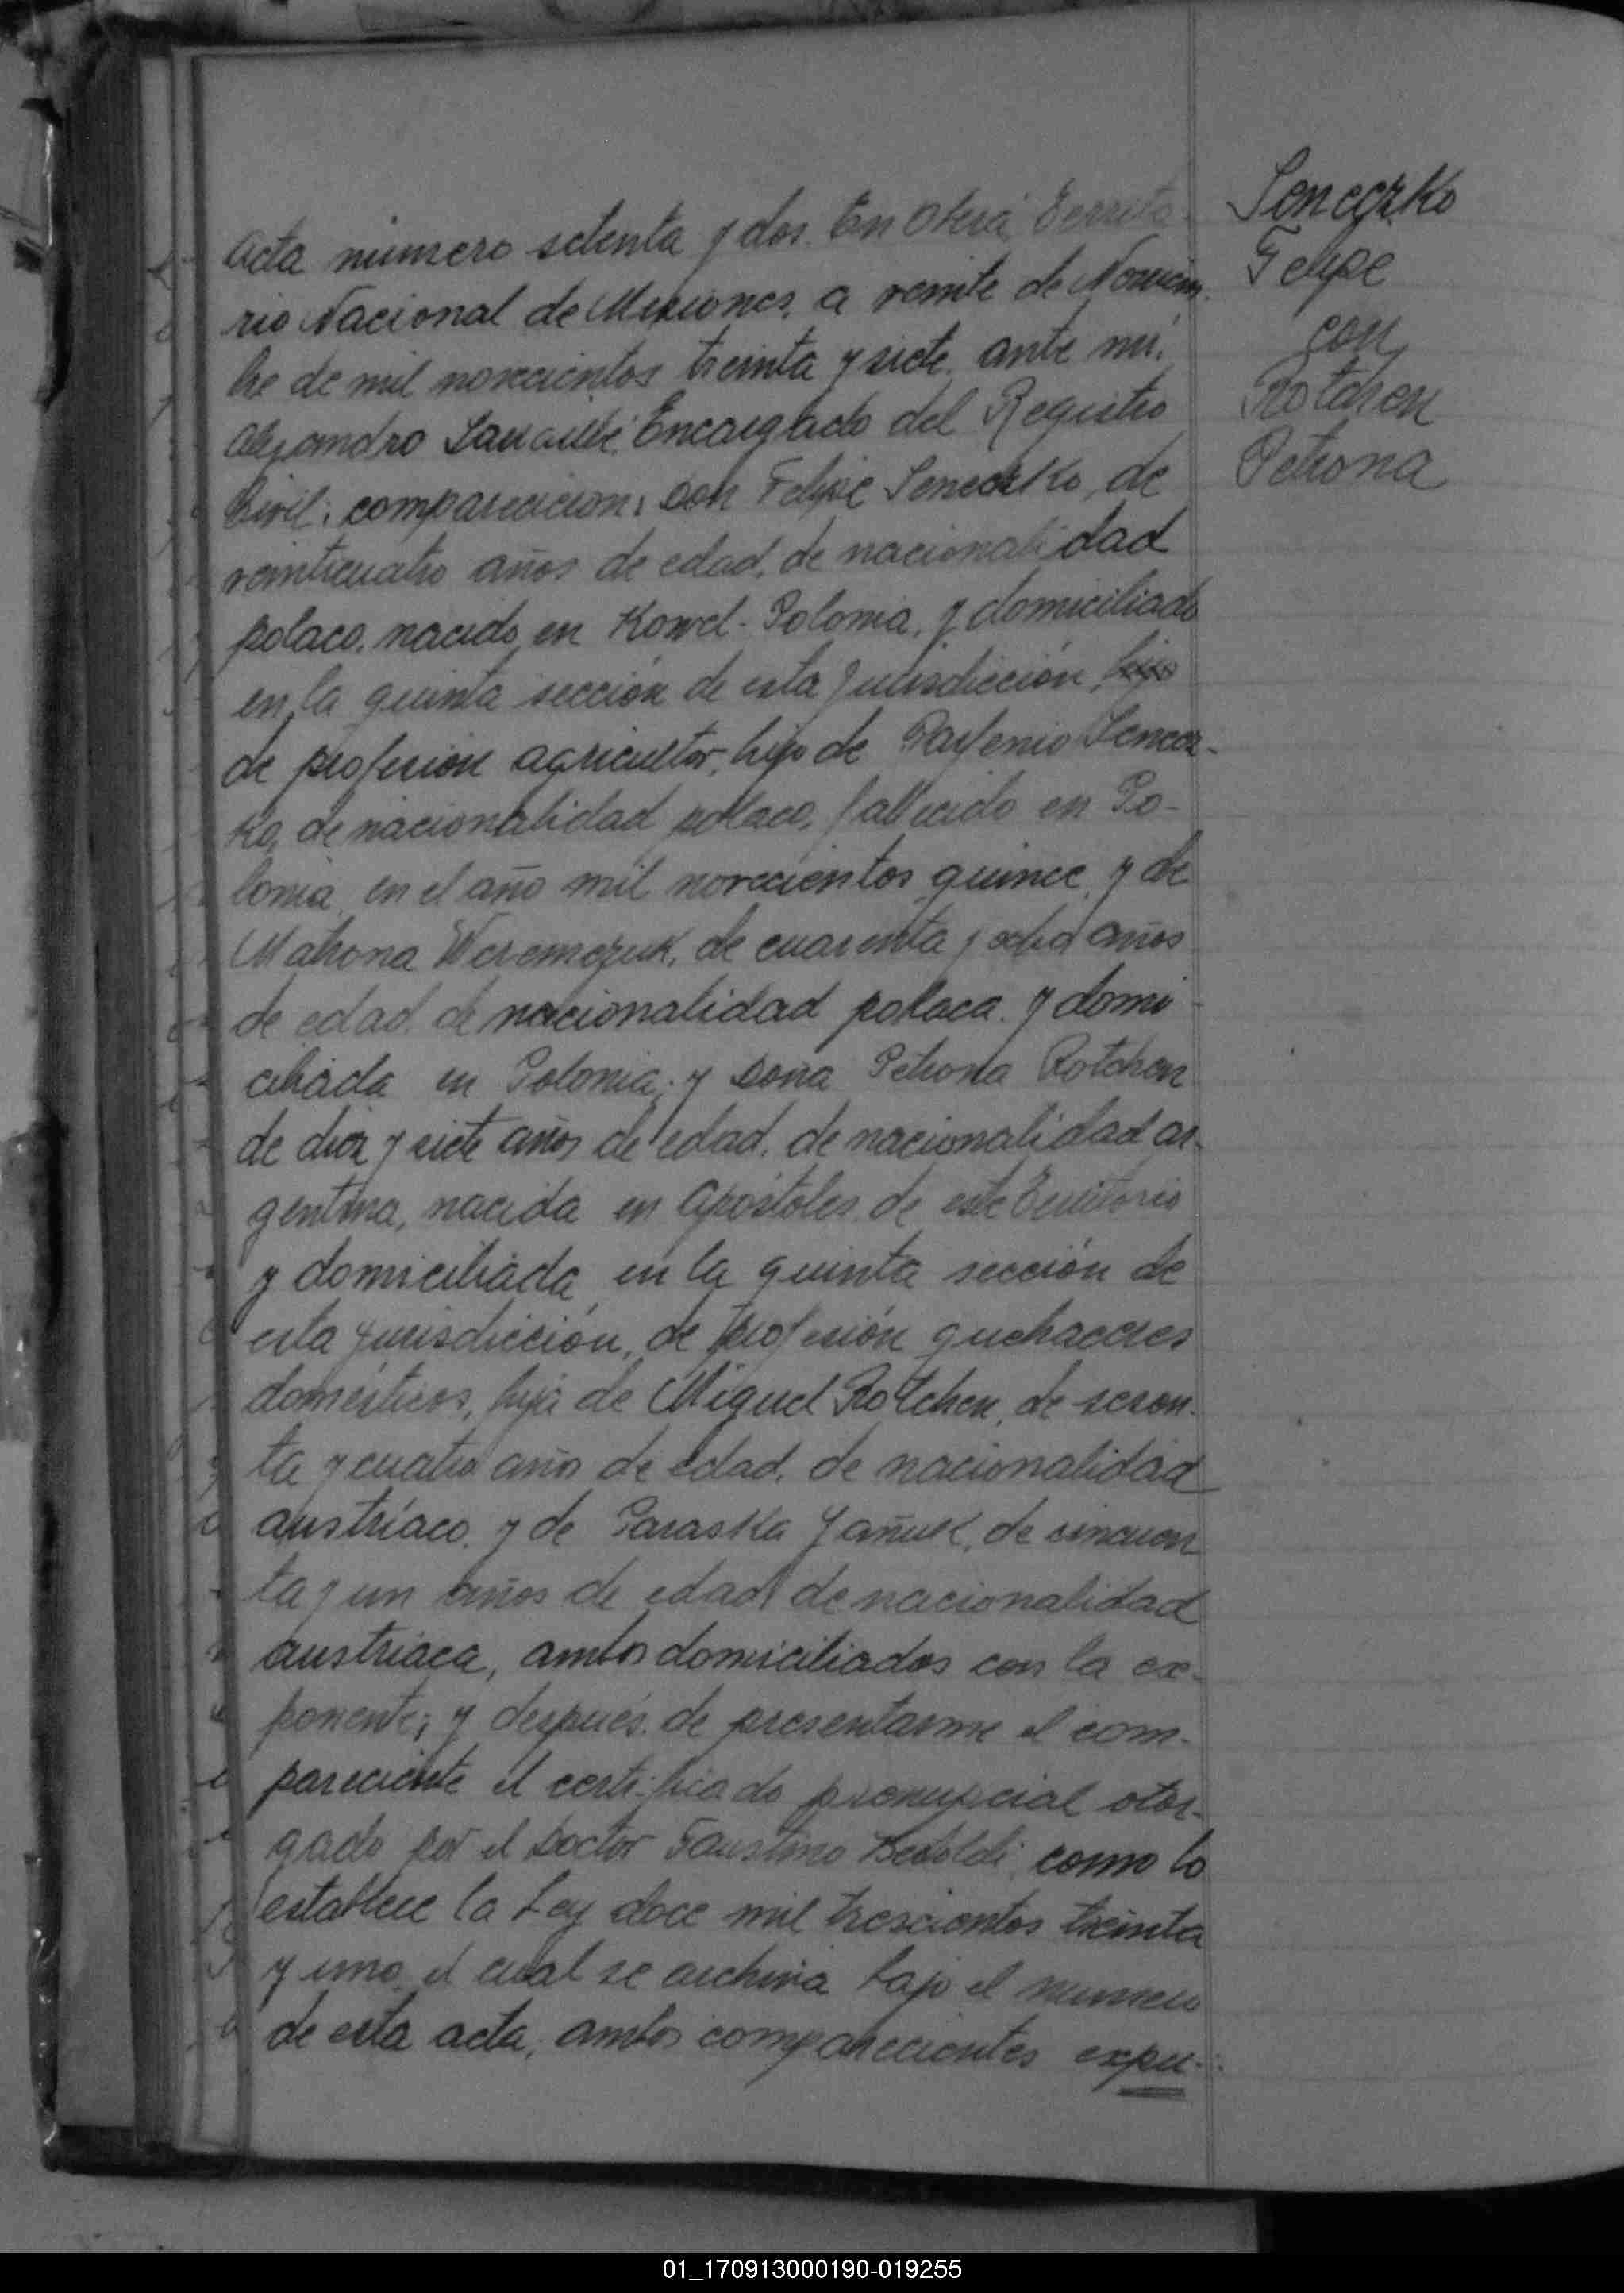 Seneczko
Felipe
con
Rotchen
Petrona
Acta número setenta y dos. En Oberá, Territo-
rio Nacional de Misiones, a veinte de Noviem-
bre de mil novecientos treinta y siete, ante mi,
Alejandro Encargado del Registro
Civil; comparecieron: Don Felipe Seneczko, de
veinticuatro años de edad, de nacionalidad
polaco, nacido en Kowel-Polonia, y domiciliado
en la quinta sección de esta jurisdicción, hijo
de profesión agricultor, hijo de Parfenio Senecz-
ko, de nacionalidad polaco, fallecido en Po-
lonia, en el año mil novecientos quince, y de
Matrona Weremczuk, de cuarenta y ocho años
de edad, de nacionalidad polaca, y domi-
ciliada en Polonia; y Doña Petrona Rotchen
de diez y siete años de edad, de nacionalidad ar-
gentina, nacida en Apóstoles, de este Territorio
y domiciliada, en la quinta sección de
esta jurisdicción, de profesión quehaceres
domésticos, hija de Miguel Rotchen, de sesen-
ta y cuatro años de edad, de nacionalidad
austríaco, y de Paraska Yañuk, de cincuen
ta y un años de edad, de nacionalidad
austríaca, ambos domiciliados con la ex-
ponente; y después de presentarme el com-
pareciente el certificado prenupcial otor-
gado por el Doctor Faustino como lo
establece la Ley doce mil trescientos treinta
y uno, el cual se archiva bajo el numero
de esta acta, ambos comparecientes expu-
01_170913000190-019255